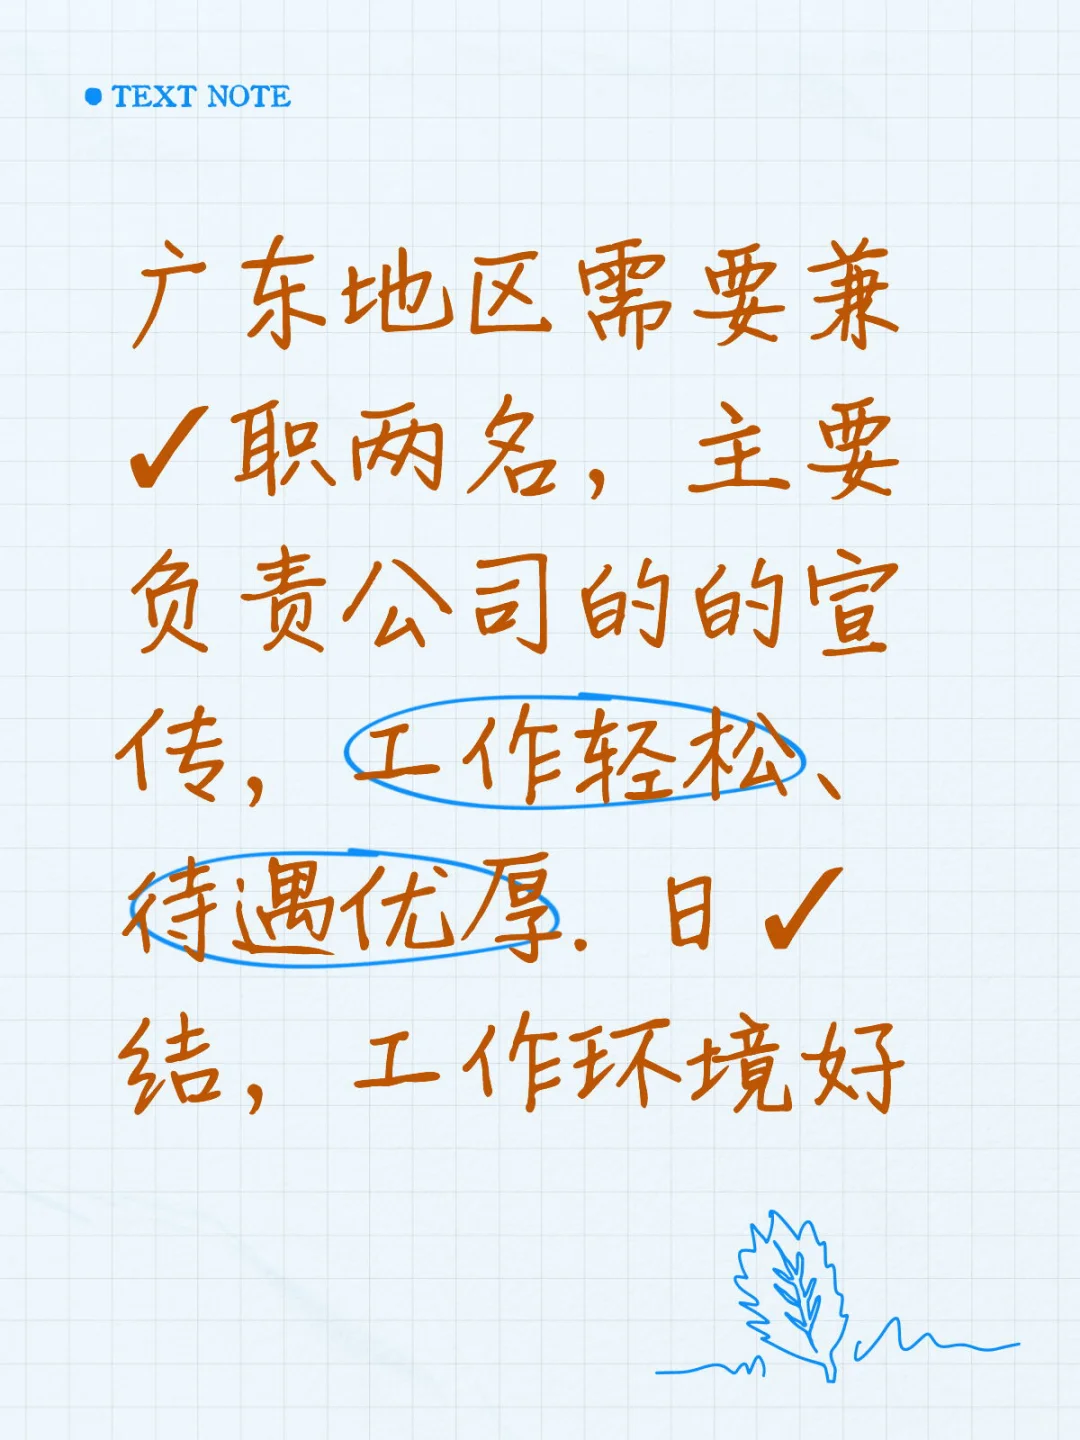 TEXT NOTE
广东地区需要兼
✓职两名，主要
负责公司的的宣
传，工作轻松、
待遇优厚．日✓
结，工作环境好